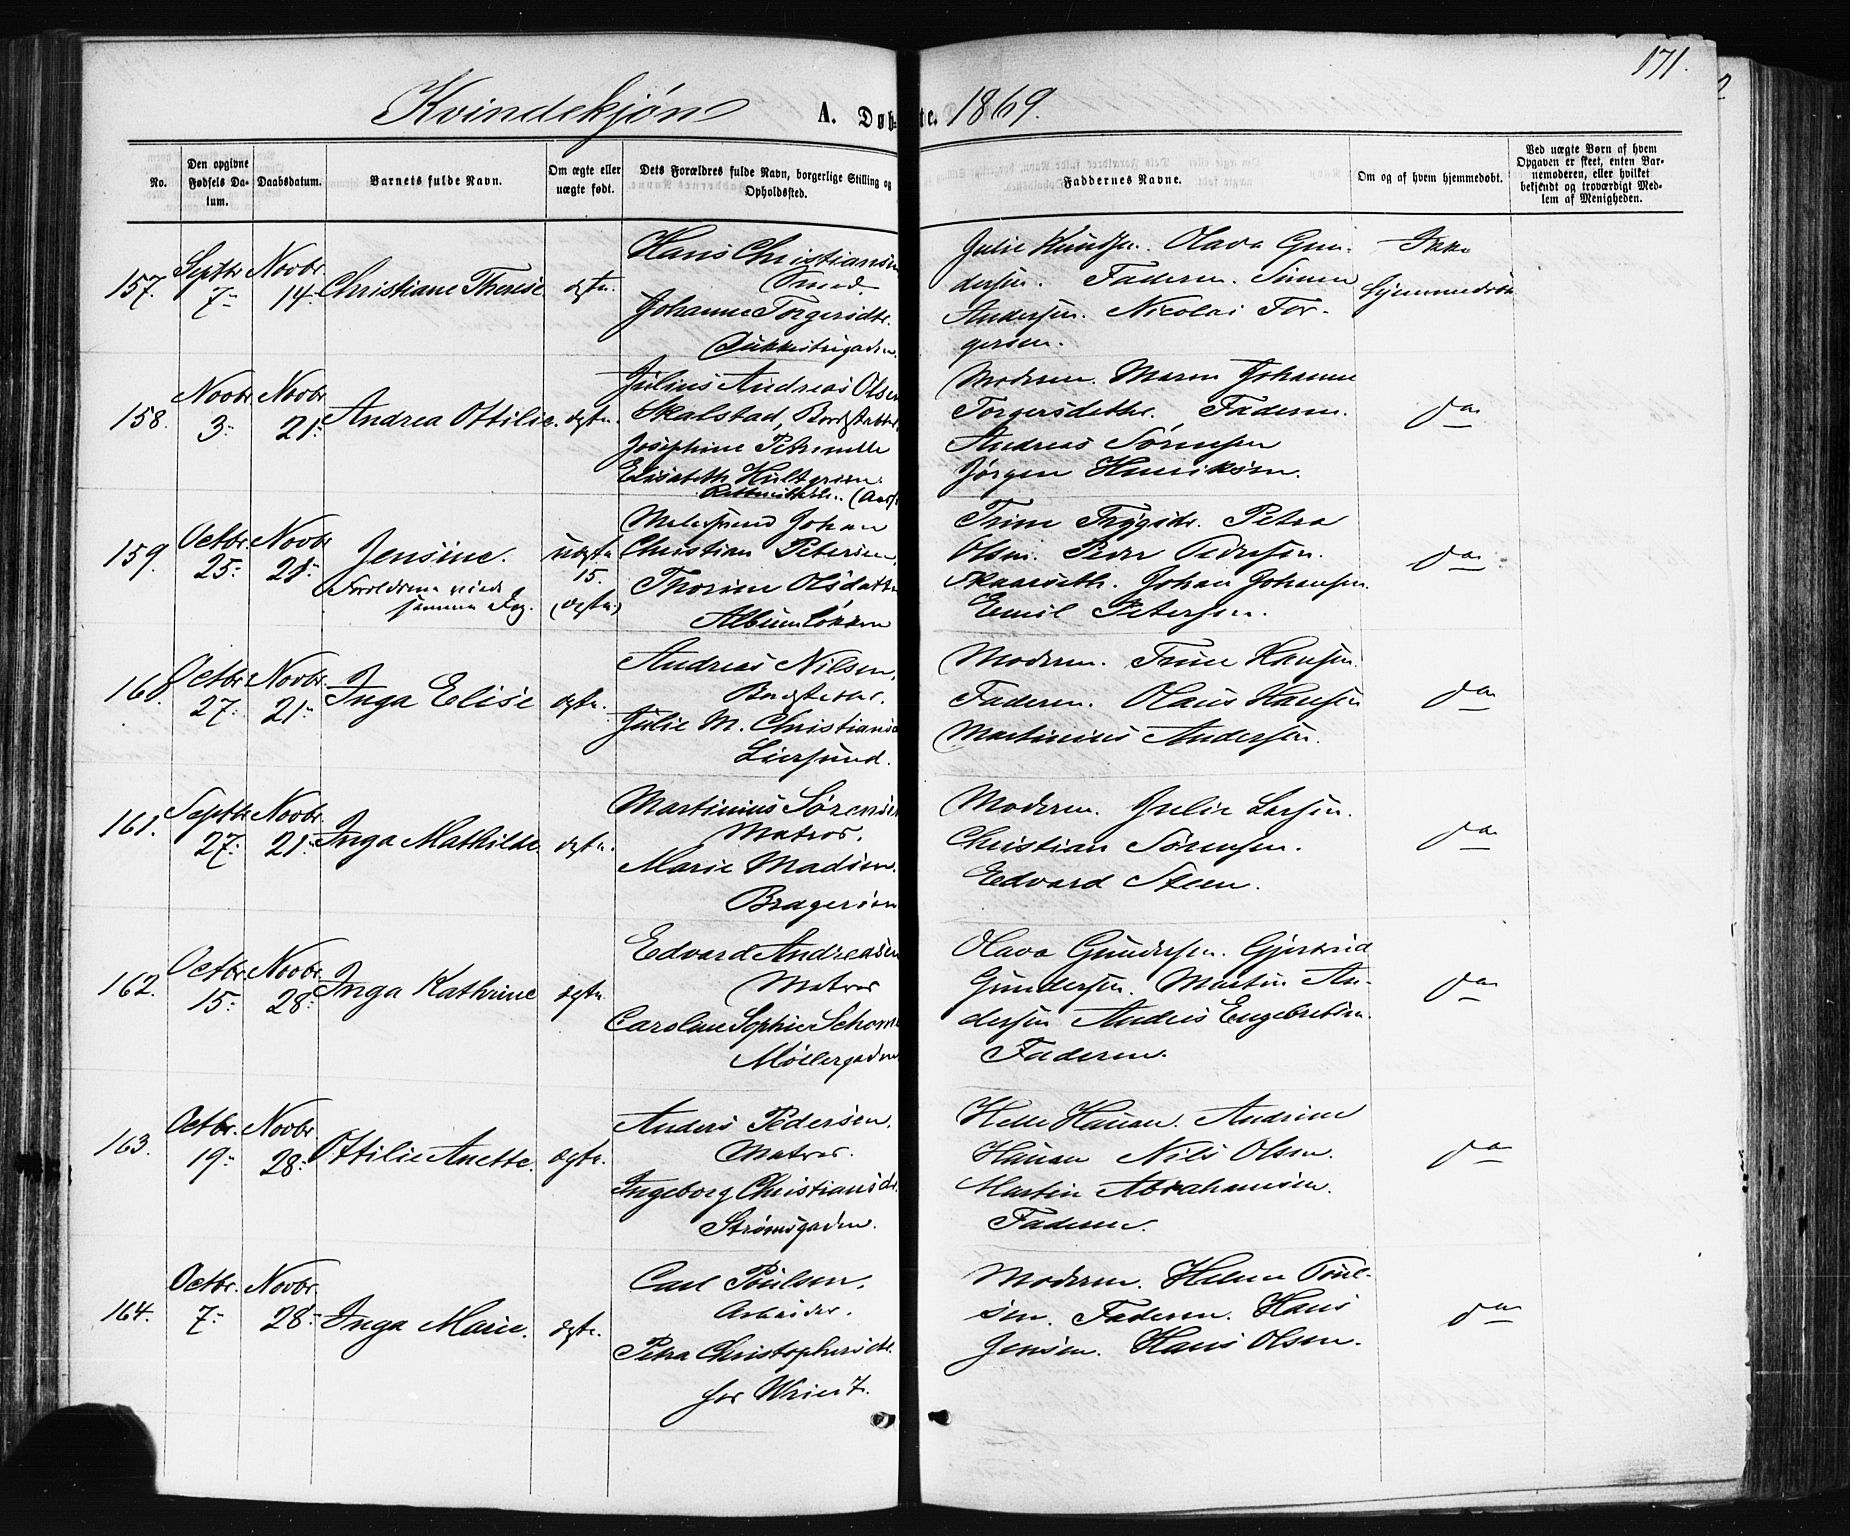 171.
Kvindekjøn A. Døbte. 1869.
No.
Den opgivne Fødsels Datum.
Daabsdatum.
Barnets fulde Navn.
Om ægte eller uægte født.
Dets Forældres fulde Navn, borgerlige Stilling og Opholdssted.
Faddernes Navne.
Om og af hvem hjemmedøbt.
Ved uægte Børn af hvem Opgaven er skeet, enten Barnemoderen, eller hvilket bekjendt og troværdigt Medlem af Menigheden.
157. Septbr 7- Novbr. 14- Christiane Therese ægte.
Hans Christiansen
Smed.
Johanne Torgersdtr.
Julie Knudsen. Olava Gun-
dersen. Faderen. Simen
Andersen. Nicolai Tor-
gersen.
Ikke
hjemmedøbt
158. Novbr 3- Novbr. 21- Andrea Ottilie. ægte.
Julius Andreas Olsen
Skalstad, Bordstabber
Josephine Petronelle
Elisabeth
Moderen. Maren Johanne
Torgersdatter. Faderen.
Andreas Sørensen
Jørgen Henriksen.
do
159. Octbr. 25- Novbr 21- Jensine. uægte
Forældrene viede
samme Dag.
15.
(ægte)
Johan
Christian Petersen,
Thorine Olsdatter
Albumløkken
Trine Trygsdr. Petra
Olsen. Peder Pedersen.
Johan Johansen.
Emil Petersen.
do
160. Octbr. 27- Novbr. 21- Inga Elise ægte.
Andreas Nilsen,
Julie M. Christiansen
Liersund.
Moderen. Trine Hansen.
Faderen. Olaus Hansen
Martinius Andersen.
do
161. Septbr 27- Novbr. 21- Inga Mathilde. ægte.
Martinius Sørensen
Matros.
Marie Madsen.
Bragerøen
Moderen. Julie Larsen.
Christian Sørensen.
Edvard Steen.
do
162. Octbr. 15- Novbr. 28- Inga Kathrine ægte.
Edvard Andreasen
Matros
Caroline Sophie
Møllergaden
Olava Gundersen. Gjertrud
Gundersen. Martin An-
dersen Anders Engebretsen.
Faderen.
do
163. Octbr. 19- Novbr. 28- Ottilie Anette. ægte.
Anders Pedersen.
Matros.
Ingeborg Christiansdr.
Strømsgaden.
Helle Hansen. Andrine
Hansen Nils Olsen.
Martin Abrahamsen.
Faderen.
do
164. Octbr. 7- Novbr. 28- Inga Marie. ægte.
Carl Poulsen.
Arbeider.
Petra Christophersdtr.
Moderen. Helene Poul-
sen. Faderen. Hans
Jensen. Hans Olsen.
do